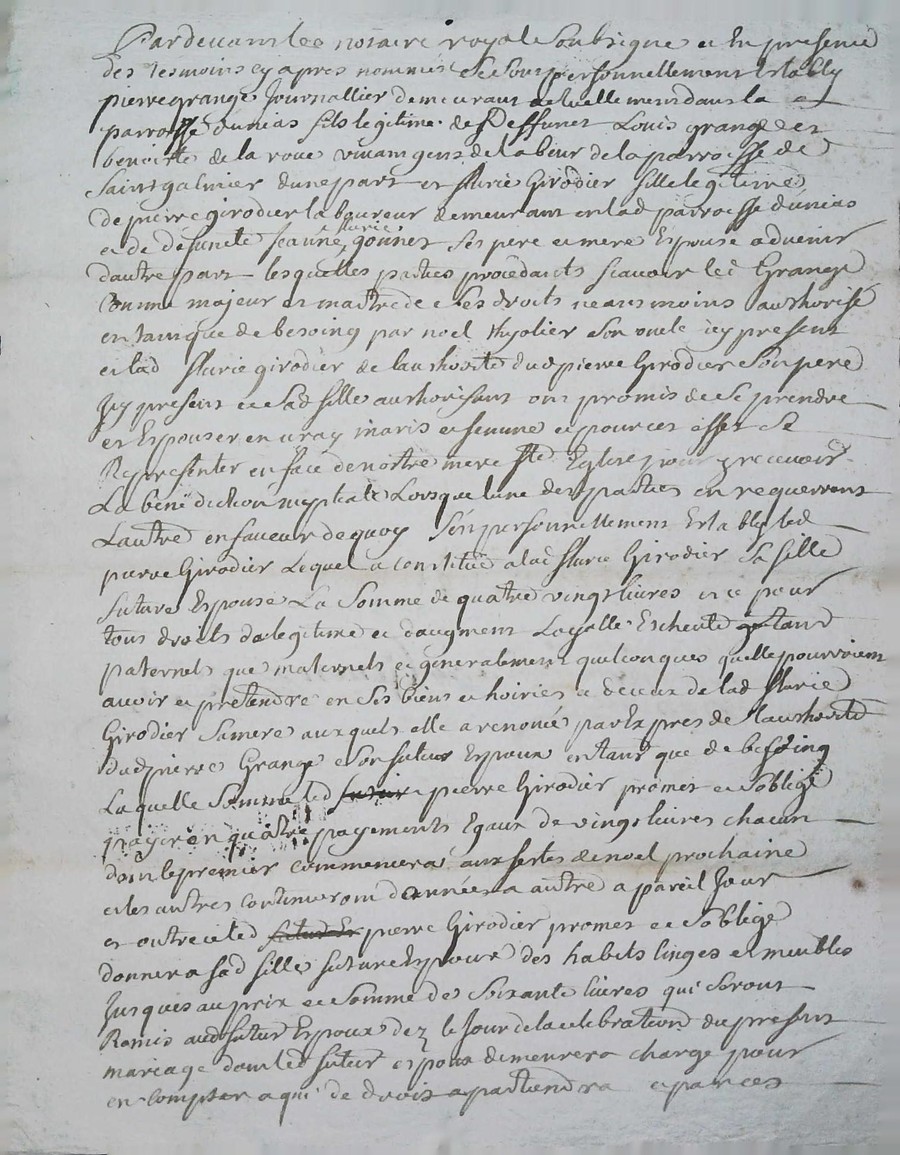 Pardevant le notaire royal Soubsigné et En presence
des tesmoins cy apres nommés Se Sont personnellement Estably
pierre grange Journallier demeurant actuellement dans la
parroisse dunias fils legitime de Deffunct Louis grange et
benoiste de la roue vivant gens de labeur de la parroisse de
Saint galmier dune part et fleurie Girodier fille legitime
de pierre girodier laboureur demeurant en lad parroisse dunias
et de defuncte Jeanne fleurie gonnet Ses pere et mere Espouse advenir
dautre part lesquelles parties procedants scavoir led Grange
Comme majeur et maitre de Ses droits neanmoins authorisé
en tant que de besoing par noel thyolier Son oncle icy present
et lad flurie girodier de lauthorité dud pierre Girodier Son pere
Icy present et Sad fille authorisant ont promis de Se prendre
et Espouser en vray maris et femme et pour ces effet Se
Representer en face de nostre mere Ste Eglise pour y recevoir
La benediction nuptiale Lorsque lune des parties en requerrent
Lautre en faveur de quoy Sest personnellement Estably led
pierre Girodier Lequel a constitué a lad flurie Girodier Sa fille
future Espouse La Somme de quatre vings livres et ce pour
tous droits de legitime et daugment Layelle Escheute tant
paternels que maternels et generalement quelconques quelle pourroient
avoir et pretendre en Ses biens et hoiries et de ceux de lad flurie
Girodier Sa mere auxquels elle a renoncé par Expres de Lauthorité
dud pierre Grange Son futur Espoux en tant que de besoing
Laquelle Somme led pierre Girodier promet et Soblige
payer en quatre payements Egaux de vings livres chacun
dont le premier commencera aux festes de noel prochaine
et les autres continueront dannée a autre a pareil Jour
et outre ce led pierre Girodier promet et Soblige
donner a Sad fille future Espouse des habits linges et meubles
Jusques au prix et Somme de Soixante livres qui Seront
Remis aud futur Espoux dez le Jour de la celebration du present
mariage dont led futur espoux demeurera chargé pour
en compter a qui de droit apartiendra et par ces